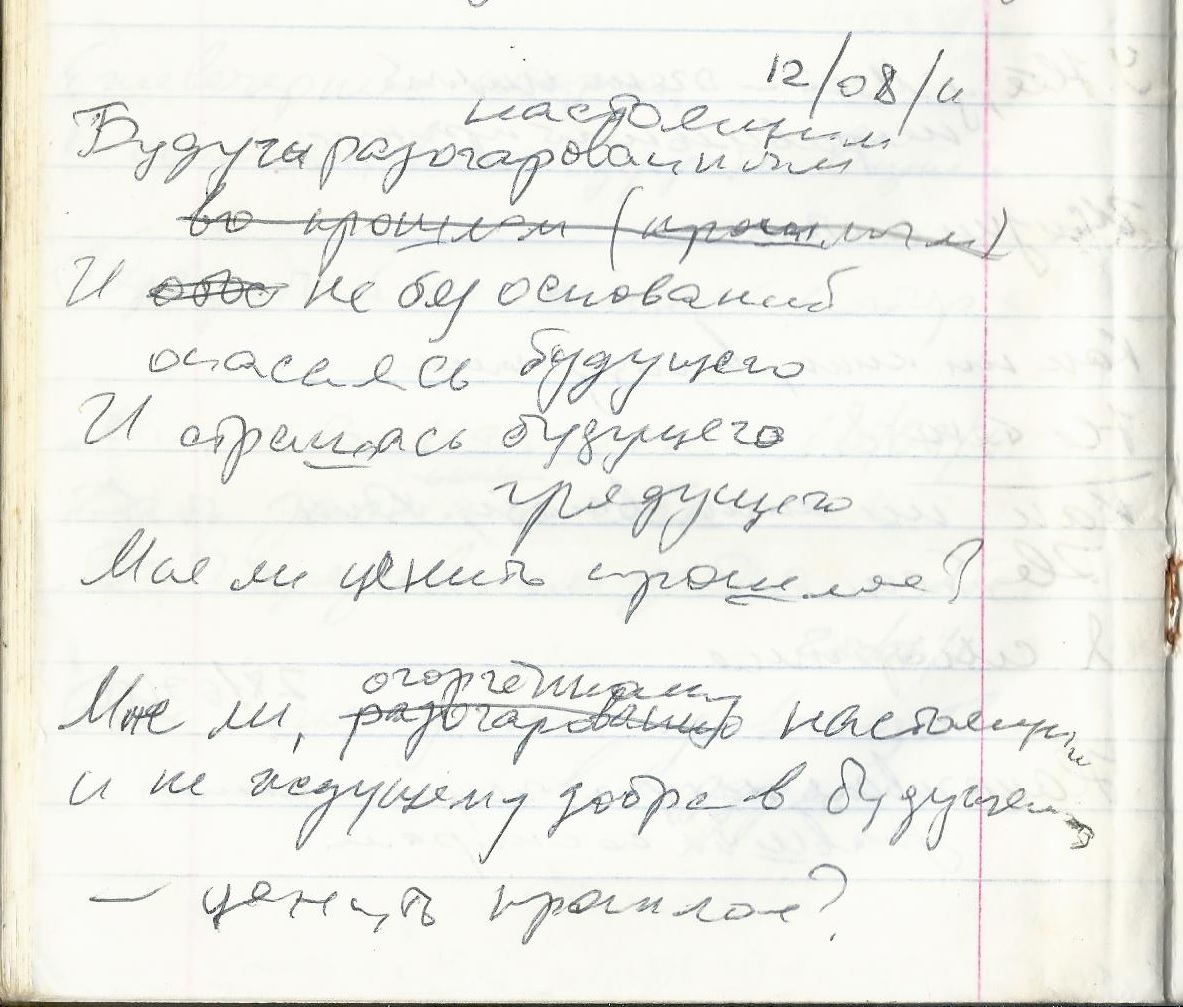 12/08/11
настоящим
Будучи разочарованным
во прошлом (прошлым)
И не без оснований
опасаясь будущего
И страшась будущего
грядущего
Мне ли ценить прошлое?
огорчённому
Мне ли, разочарованно настоящим
и не ждущему добра в будущем
— ценить прошлое?